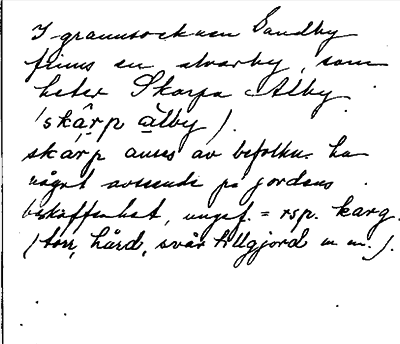 I grannsocknen Sandby
finns en alvarby, som
heter Skarpa Alby
(skârp àlby).
skárp anses av befolkn. ha
något avseende på jordens
beskaffenhet, ungef. = rsp. karg.
(torr, hård, svår tillgjord m m.).